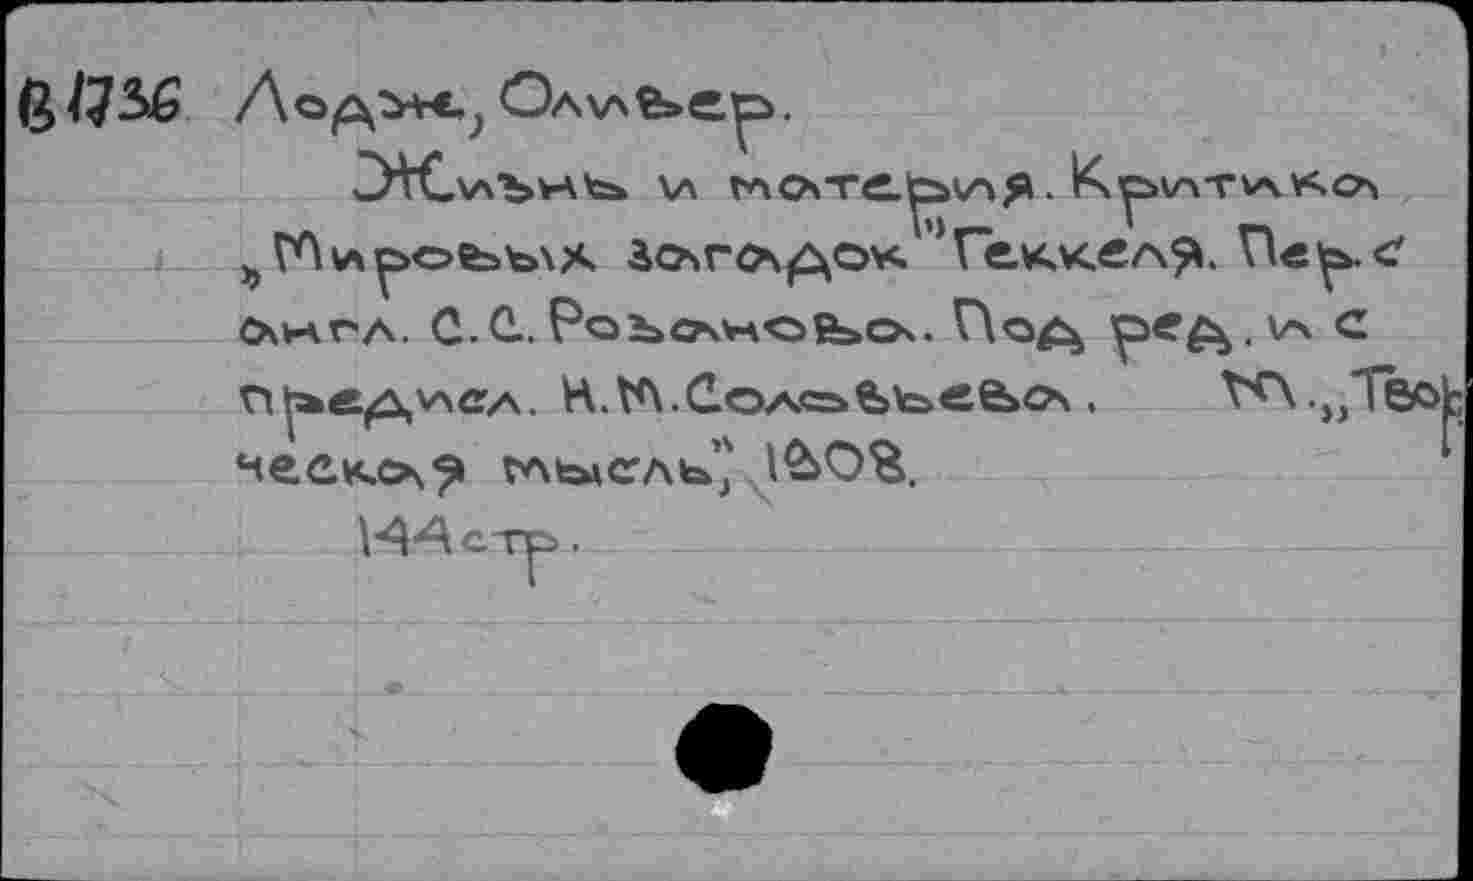 В1736 Лодж, Оливьер.
Жизнь и материя. Критика
„Мировых загадок" Геккеля. Пер. с
англ. С.С. Розанова. Под ред. и с
предисл. Н.М.Соловьева. М.„Твор
ческая мысль", 1908.
144 стр.